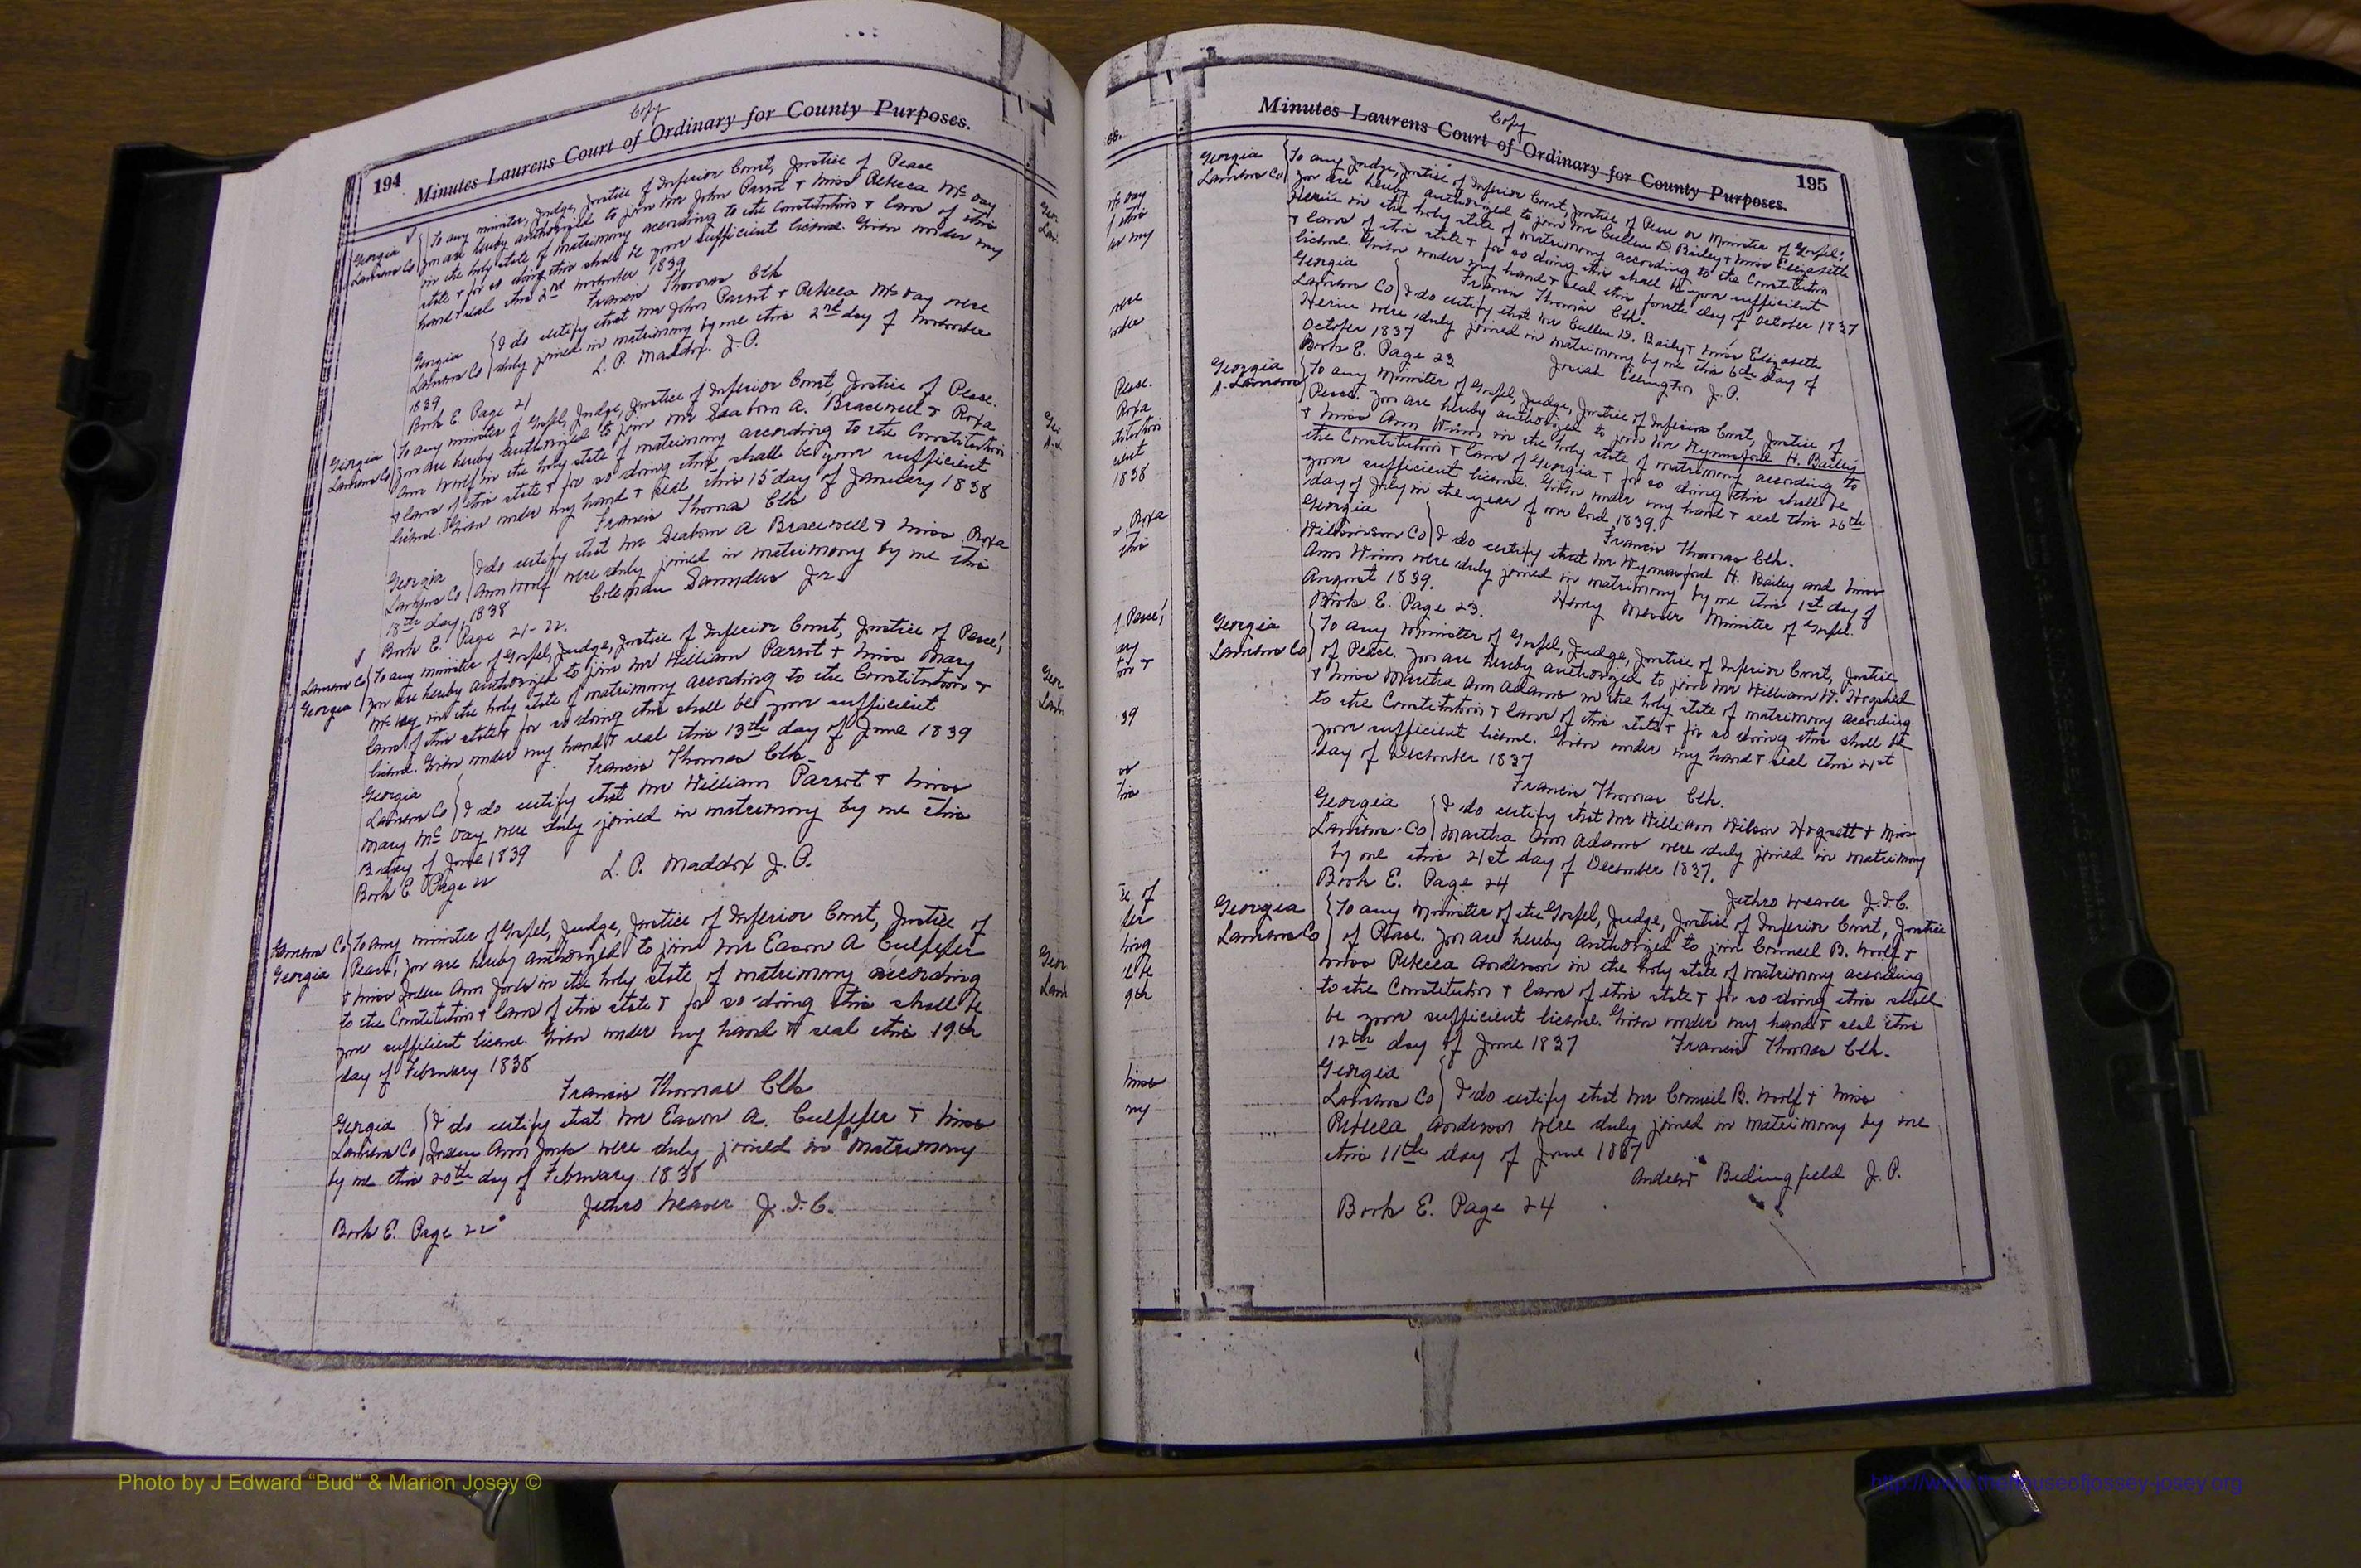 Copy
194 Minutes Laurens Court of Ordinary for County Purposes.
Georgia
Laurens Co
To any minister, Judge, Justice of Inferior Court, Justice of Peace
you are hereby authorized to join Mr John Parrot & Miss Rebecca McVay
in the holy state of matrimony according to the Constitution & laws of this
state & for so doing this shall be your sufficient license. Given under my
hand & seal this 2nd November 1839
Francis Thomas Clk
Georgia
Laurens Co
I do certify that Mr John Parrot & Rebecca McVay were
duly joined in matrimony by me this 2nd day of November
1839
L. P. Maddox. J. P.
Book E Page 21
Georgia
Laurens Co
To any minister of Gospel, Judge, Justice of Inferior Court, Justice of Peace.
you are hereby authorized to join Mr Seaborn A. Bracewell & Roxa
Ann Woolf in the holy state of matrimony according to the Constitution
& laws of this state & for so doing this shall be your sufficient
license. Given under my hand & seal this 15 day of January 1838
Francis Thomas Clk
Georgia
Laurens Co
I do certify that Mr Seaborn A Bracewell & Miss Roxa
Ann Woolf were duly joined in matrimony by me this
18th day 1838
Coleman
Book E. Page 21-22.
Laurens Co
Georgia
To any minister of Gospel, Judge, Justice of Inferior Court, Justice of Peace,
you are hereby authorized to join Mr William Parrot & Miss Mary
McVay in the holy state of matrimony according to the Constitution &
laws of this state & for so doing this shall be your sufficient
license. Given under my hand & seal this 13th day of June 1839
Francis Thomas Clk.
Georgia
Laurens Co
I do certify that Mr William Parrot & Miss
Mary McVay were duly joined in matrimony by me this
13 day of June 1839
L. P. Maddox J. P.
Book E Page 22
Laurens Co
Georgia
To any minister of Gospel, Judge, Justice of Inferior Court, Justice of
Peace, you are hereby authorized to join Mr Eason A Culpepper
& Miss Ann in the holy state of matrimony according
to the Constitution & laws of this state & for so doing this shall be
your sufficient license. Given under my hand & seal this 19th
day of February 1838
Francis Thomas Clk
Georgia
Laurens Co
I do certify that Mr Eason A. Culpepper & Miss
Ann were duly joined in Matrimony
by me this 20th day of February 1838
Jethro Weaver J.I.C.
Book E. Page 22
Copy
Minutes Laurens Court of Ordinary for County Purposes. 195
Georgia
Laurens Co
To any Judge, Justice of Inferior Court, Justice of Peace or Minister of Gospel;
you are hereby authorized to join Mr Cullen D Bailey & Miss Elizabeth
in the holy state of matrimony according to the Constitution
& laws of this state & for so doing this shall be your sufficient
license. Given under my hand & seal this fourth day of October 1837
Francis Thomas Clk.
Georgia
Laurens Co
I do certify that Mr Cullen D. Baily & Miss Elizabeth
were duly joined in matrimony by me this 6th day of
October 1837
Josiah J. P.
Book E. Page 23
Georgia
Laurens
To any Minister of Gospel, Judge, Justice of Inferior Court, Justice of
Peace. you are hereby authorized to join Mr Wynnsford H. Bailey
& Miss Ann Winn in the holy state of matrimony according to
the Constitution & laws of Georgia & for so doing this shall be
your sufficient license. Given under my hand & seal this 26th
day of July in the year of our lord 1839.
Francis Thomas Clk.
Georgia
Wilkinson Co
I do certify that Mr Wynnsford H. Bailey and Miss
Ann Winn were duly joined in matrimony by me this 1st day of
August 1839.
Henry Minister of Gospel.
Book E. Page 23.
Georgia
Laurens Co
To any Minister of Gospel, Judge, Justice of Inferior Court, Justice
of Peace. you are hereby authorized to join Mr William W.
& Miss Martha Ann Adams in the holy state of matrimony according
to the Constitution & laws of this state & for so doing this shall be
your sufficient license. Given under my hand & seal this 21st
day of December 1837
Francis Thomas Clk.
Georgia
Laurens Co
I do certify that Mr William Wilson Hogsett & Miss
Martha Ann Adams were duly joined in matrimony
by me this 21st day of December 1837.
Jethro Weaver J.I.C.
Book E. Page 24
Georgia
Laurens Co
To any Minister of the Gospel, Judge, Justice of Inferior Court, Justice
of Peace. you are hereby authorized to join Council B. Woolf &
Miss Rebecca Anderson in the holy state of matrimony according
to the Constitution & laws of this state & for so doing this shall
be your sufficient license. Given under my hand & seal this
12th day of June 1837 Francis Thomas Clk.
Georgia
Laurens Co
I do certify that Mr Council B. Woolf & Miss
Rebecca Anderson were duly joined in matrimony by me
this 11th day of June 1837
Bedingfield J. P.
Book E. Page 24
Photo by J Edward “Bud” & Marion Josey ©
http://www.thehouseofjossey-josey.org